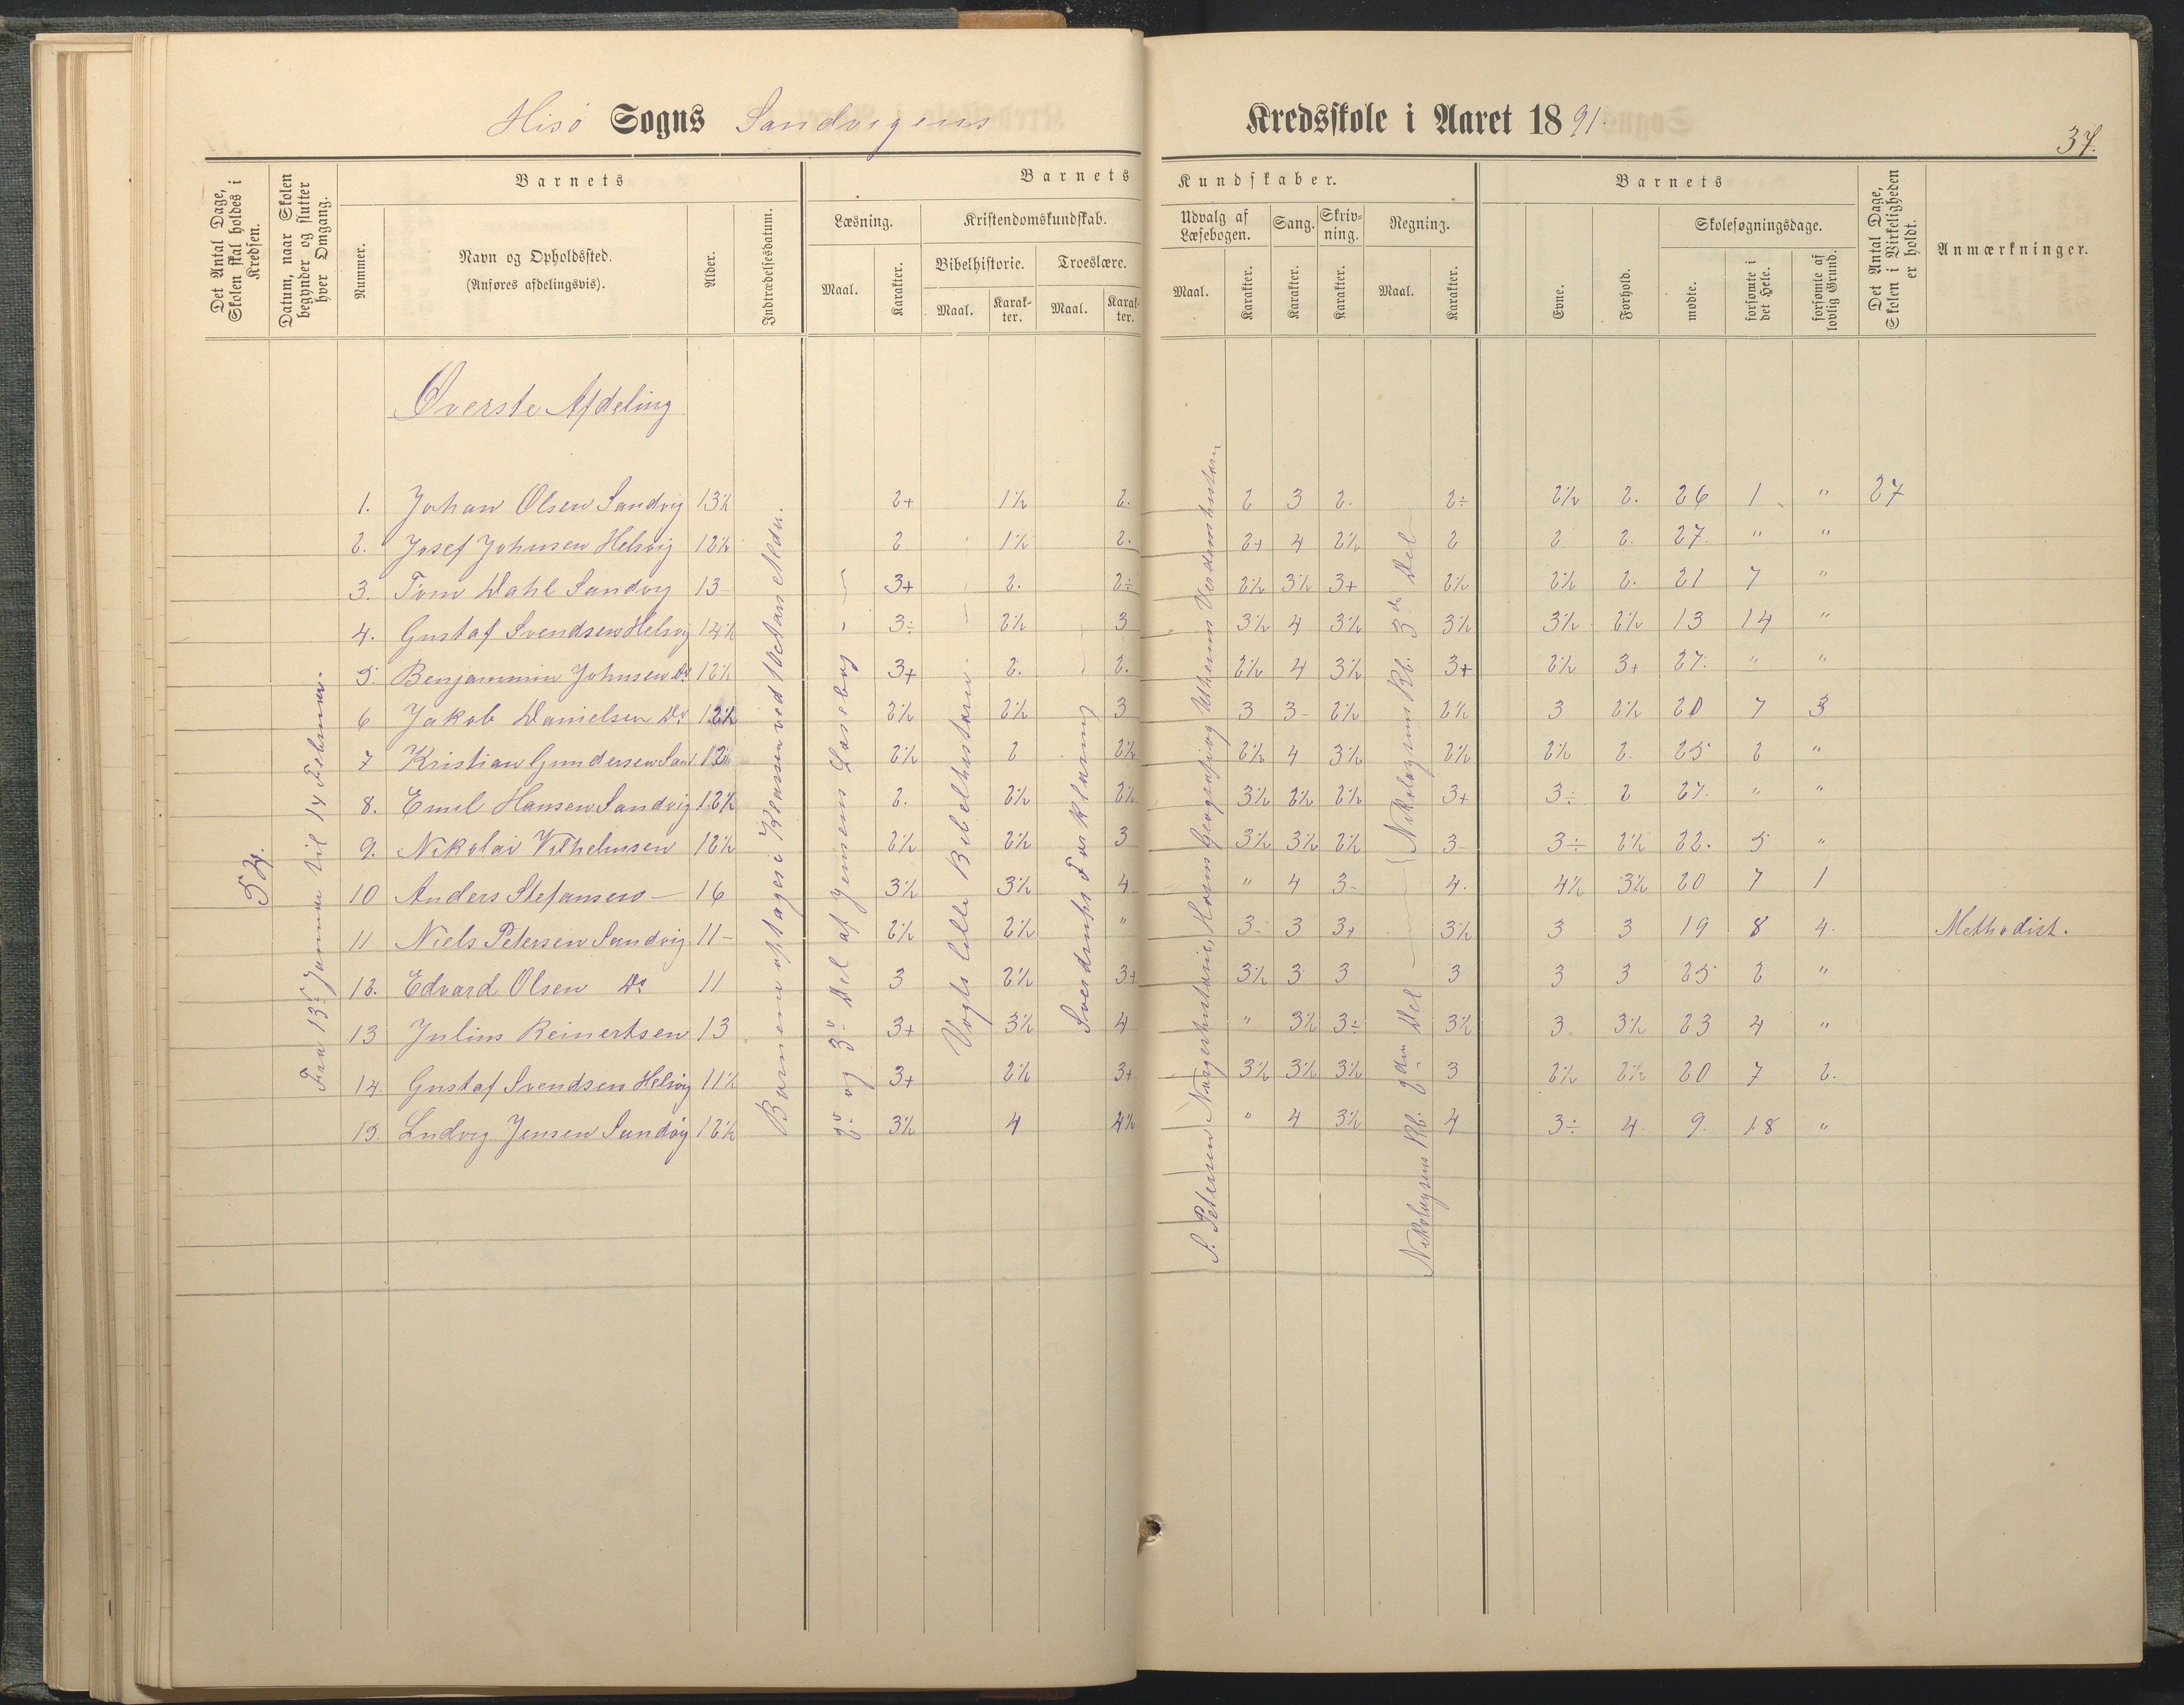 Hisø Sogns Sandvigens Kredsskole i Aaret 1891.
37.
Det Antal Dage, Skolen skal holdes i Kredsen.
Datum, naar Skolen begynder og slutter hver Omgang.
Barnets
Nummer.
Navn og Opholdssted.
(Anføres afdelingsvis).
Alder.
Indtrædelsesdatum.
Barnets Kundskaber.
Læsning.
Maal.
Karakter.
Kristendomskundskab.
Bibelhistorie.
Maal.
Karakter.
Troeslære.
Maal.
Karakter.
Udvalg af Læsebogen.
Maal.
Karakter.
Sang.
Karakter.
Skrivning.
Karakter.
Regning.
Maal.
Karakter.
Barnets
Evne.
Forhold.
Skolesøgningsdage.
mødte.
forsømte i det Hele.
forsømte af lovlig Grund.
Det Antal Dage, Skolen i Virkeligheden er holdt.
Anmærkninger.
Øverste Afdeling
54.
Fra 13de Januar til 14 Februar.
Børnene optages i Klassen ved 10 Aars Alder.
2den og 3die Del af Jensens Læsebog
Vogts lille Bibelhistorie
Sverdrups Forklaring
S. Petersen Norgeshistorie, Horns Geografi og Verdenshistorien
Nikolaysens Rb. 3die Del
Nikolaysens Rb. 2den Del
1. Johan Olsen Sandvig 13½ 2+ 1½ 2. 2 3 2. 2÷ 2½ 2. 26 1 " 27
2. Josef Johnsen Helsvig 12½ 2 1½ 2. 2+ 4 2½ 2 2 2. 27. " "
3. Tom Dahl Sandvig 13 3+ 2. 2÷ 2½ 3½ 3+ 2½ 2½ 2. 21 7 "
4. Gustaf Svendsen Helsvig 14½ 3÷ 2½ 3 3½ 4 3½ 3½ 3½ 2½ 13 14 "
5. Benjammin Johnsen Do 12½ 3+ 2. 2. 2½ 4 3½ 3+ 2½ 3+ 27. " "
6 Jakob Danielsen Do 12½ 2½ 2½ 3 3 3- 2½ 2½ 3 2½ 20 7 3
7 Kristian Gundersen San 12½ 2½ 2 2½ 2½ 4 3½ 2½ 2½ 2. 25 2 "
8. Emil Hansen Sandvig 12½ 2. 2½ 2½ 3½ 2½ 2½ 3+ 3÷ 2 27. " "
9. Nikolai Vilhelmsen 12½ 2½ 2½ 3 3½ 3½ 2½ 3- 3÷ 2½ 22. 5 "
10 Anders Stefansen - 16 3½ 3½ 4 " 4 3- 4. 4½ 3½ 20 7 1
11 Niels Petersen Sandvig 11- 2½ 2½ " 3- 3 3+ 3½ 3 3 19 8 4. Methodist.
12. Edvard Olsen Do 11 3 2½ 3+ 3½ 3 3 3 3 3 25 2 "
13 Julius Reinertsen 13 3+ 3½ 4 " 3½ 3÷ 3½ 3 3½ 23 4 "
14. Gustaf Svendsen Helsvig 11½ 3+ 2½ 3+ 3½ 3½ 3½ 3 2½ 2½ 20 7 2.
15. Ludvig Jensen Sandvig 12½ 3½ 4 4½ " 4 3½ 4 3÷ 4. 9. 18 "